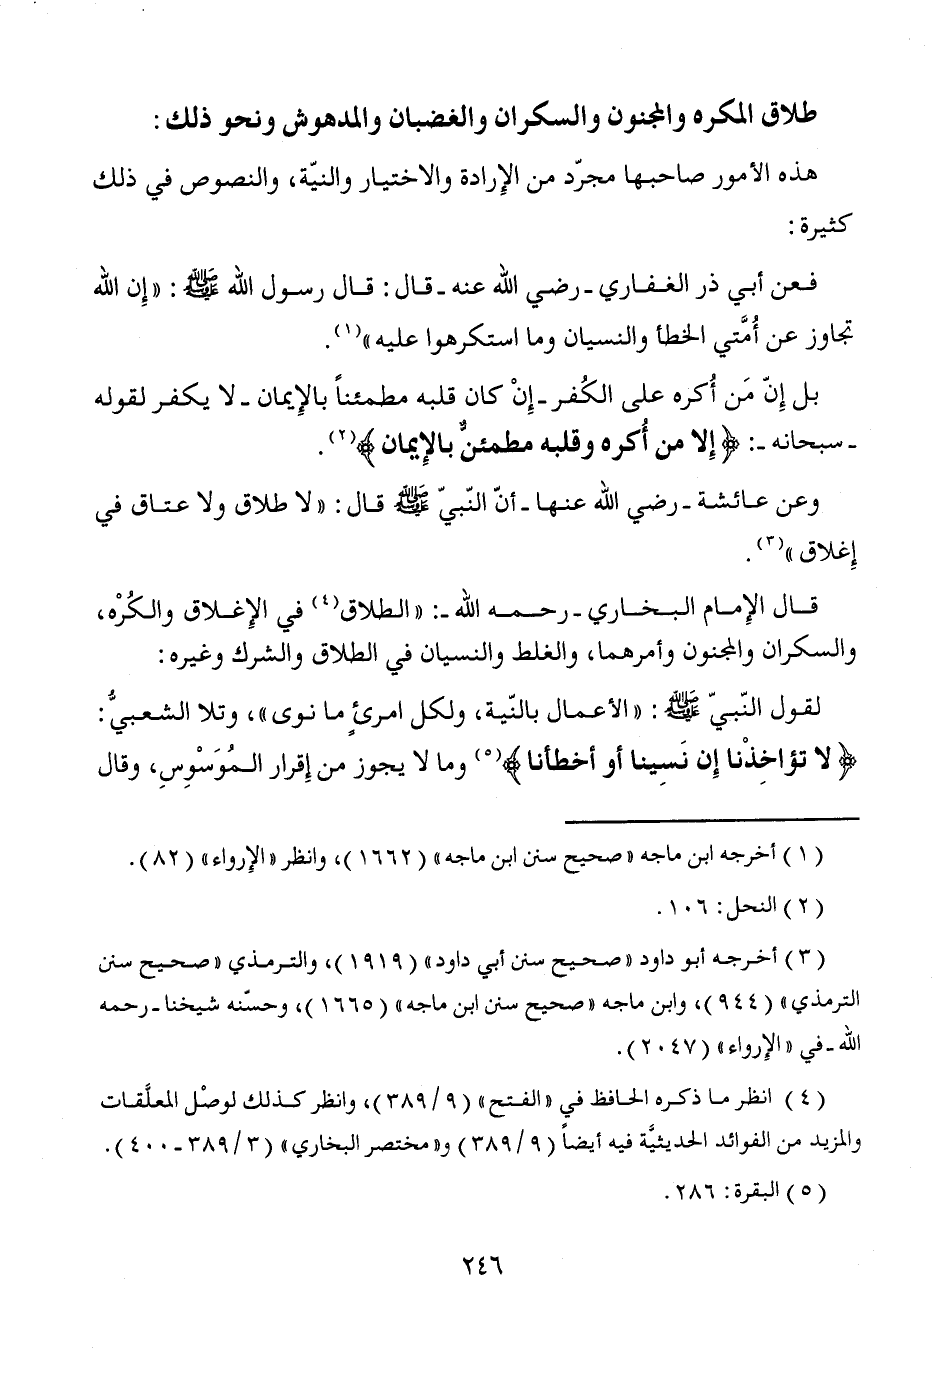 طلاق المكره والمجنون والسكران والغضبان والمدهوش ونحو ذلك :
هذه الأمور صاحبها مجرّد من الإرادة والاختيار والنيّة، والنصوص في ذلك
كثيرة :
فعن أبي ذر الغفاري ـ رضي الله عنه ـ قال : قال رسول الله ﷺ : « إن الله
تجاوز عن أُمَّتي الخطأ والنسيان وما استكرهوا عليه »(١).
بل إنّ مَن أُكره على الكُفر ـ إنْ كان قلبه مطمئناً بالإيمان ـ لا يكفر لقوله
ـ سبحانه ـ: ﴿ إلا من أُكره وقلبه مطمئنٌّ بالإيمان ﴾(٢).
وعن عائشة ـ رضي الله عنها ـ أنّ النّبيّ ﷺ قال : « لا طلاق ولا عتاق في
إغلاق »(٣).
قال الإمام البخاري ـ رحمه الله ـ: « الطلاق(٤) في الإغلاق والكُرْه،
والسكران والمجنون وأمرهما، والغلط والنسيان في الطلاق والشرك وغيره :
لقول النّبيّ ﷺ : « الأعمال بالنّية، ولكل امرئٍ ما نوى »، وتلا الشعبيُّ :
﴿ لا تؤاخِذْنا إن نَسِينا أو أخطأنا ﴾(٥) وما لا يجوز من إقرار المُوَسْوِسِ، وقال
( ١ ) أخرجه ابن ماجه « صحيح سنن ابن ماجه » ( ١٦٦٢ )، وانظر « الإرواء » ( ٨٢ ).
( ٢ ) النحل : ١٠٦ .
( ٣ ) أخرجه أبو داود « صحيح سنن أبي داود » ( ١٩١٩ )، والترمذي « صحيح سنن
الترمذي » ( ٩٤٤ )، وابن ماجه « صحيح سنن ابن ماجه » ( ١٦٦٥ )، وحسّنه شيخنا ـ رحمه
الله ـ في « الإرواء » ( ٢٠٤٧ ).
( ٤ ) انظر ما ذكره الحافظ في « الفتح » ( ٩ / ٣٨٩ )، وانظر كذلك لوصْل المعلَّقات
والمزيد من الفوائد الحديثيَّة فيه أيضاً ( ٩ / ٣٨٩ ) و« مختصر البخاري » ( ٣ / ٣٨٩ ـ ٤٠٠ ).
( ٥ ) البقرة : ٢٨٦ .
٢٤٦